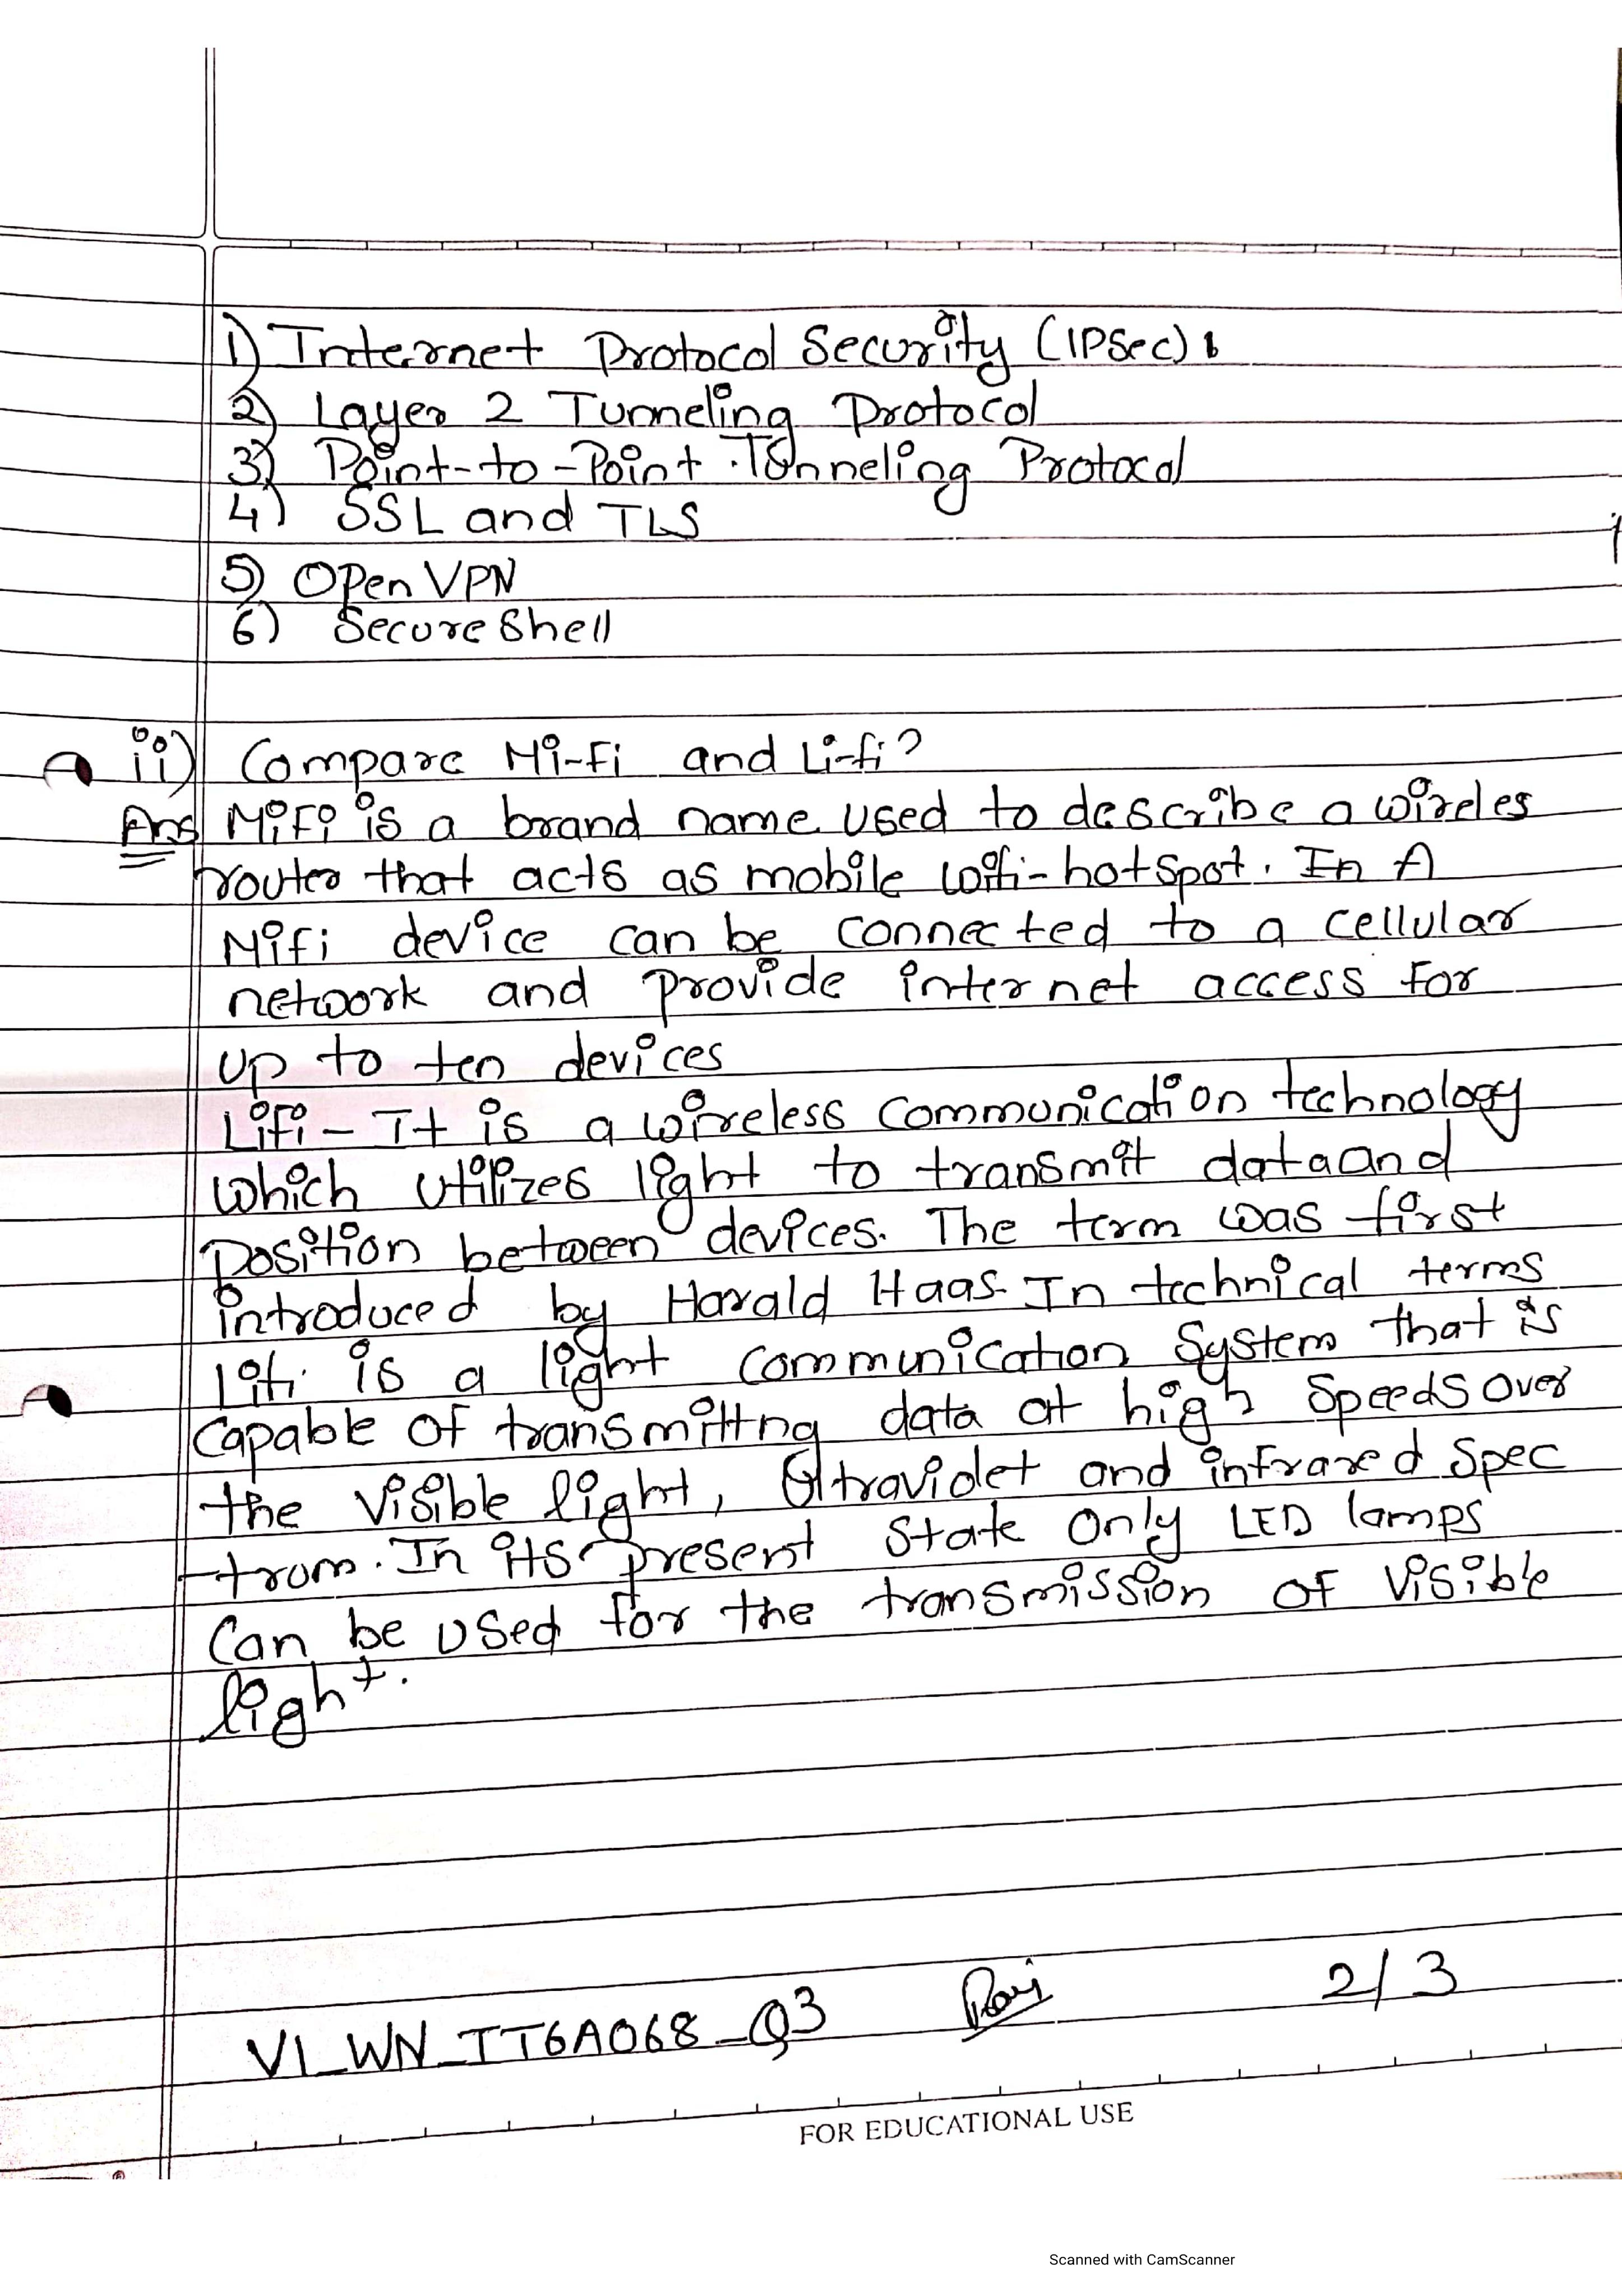 1) Internet Protocol Security (IPSec):
2) Layer 2 Tunneling Protocol
3) Point-to-Point Tunneling Protocol
4) SSL and TLS
5) Open VPN
6) Secure Shell
ii) Compare Mi-Fi and Li-fi?
Ans MiFi is a brand name used to describe a wireles
router that acts as mobile wifi-hotspot. In A
Mifi device can be connected to a cellular
network and provide internet access for
up to ten devices
Lifi - It is a wireless communication technology
which utilizes light to transmit data and
position between devices. The term was first
introduced by Harald Haas. In technical terms
Lifi is a light communication system that is
capable of transmitting data at high speeds over
the visible light, Ultraviolet and infrared spec
-trum. In its present state only LED lamps
can be used for the transmission of visible
light.
VI_WN_IT6A068_Q3 2/3
FOR EDUCATIONAL USE
Scanned with CamScanner